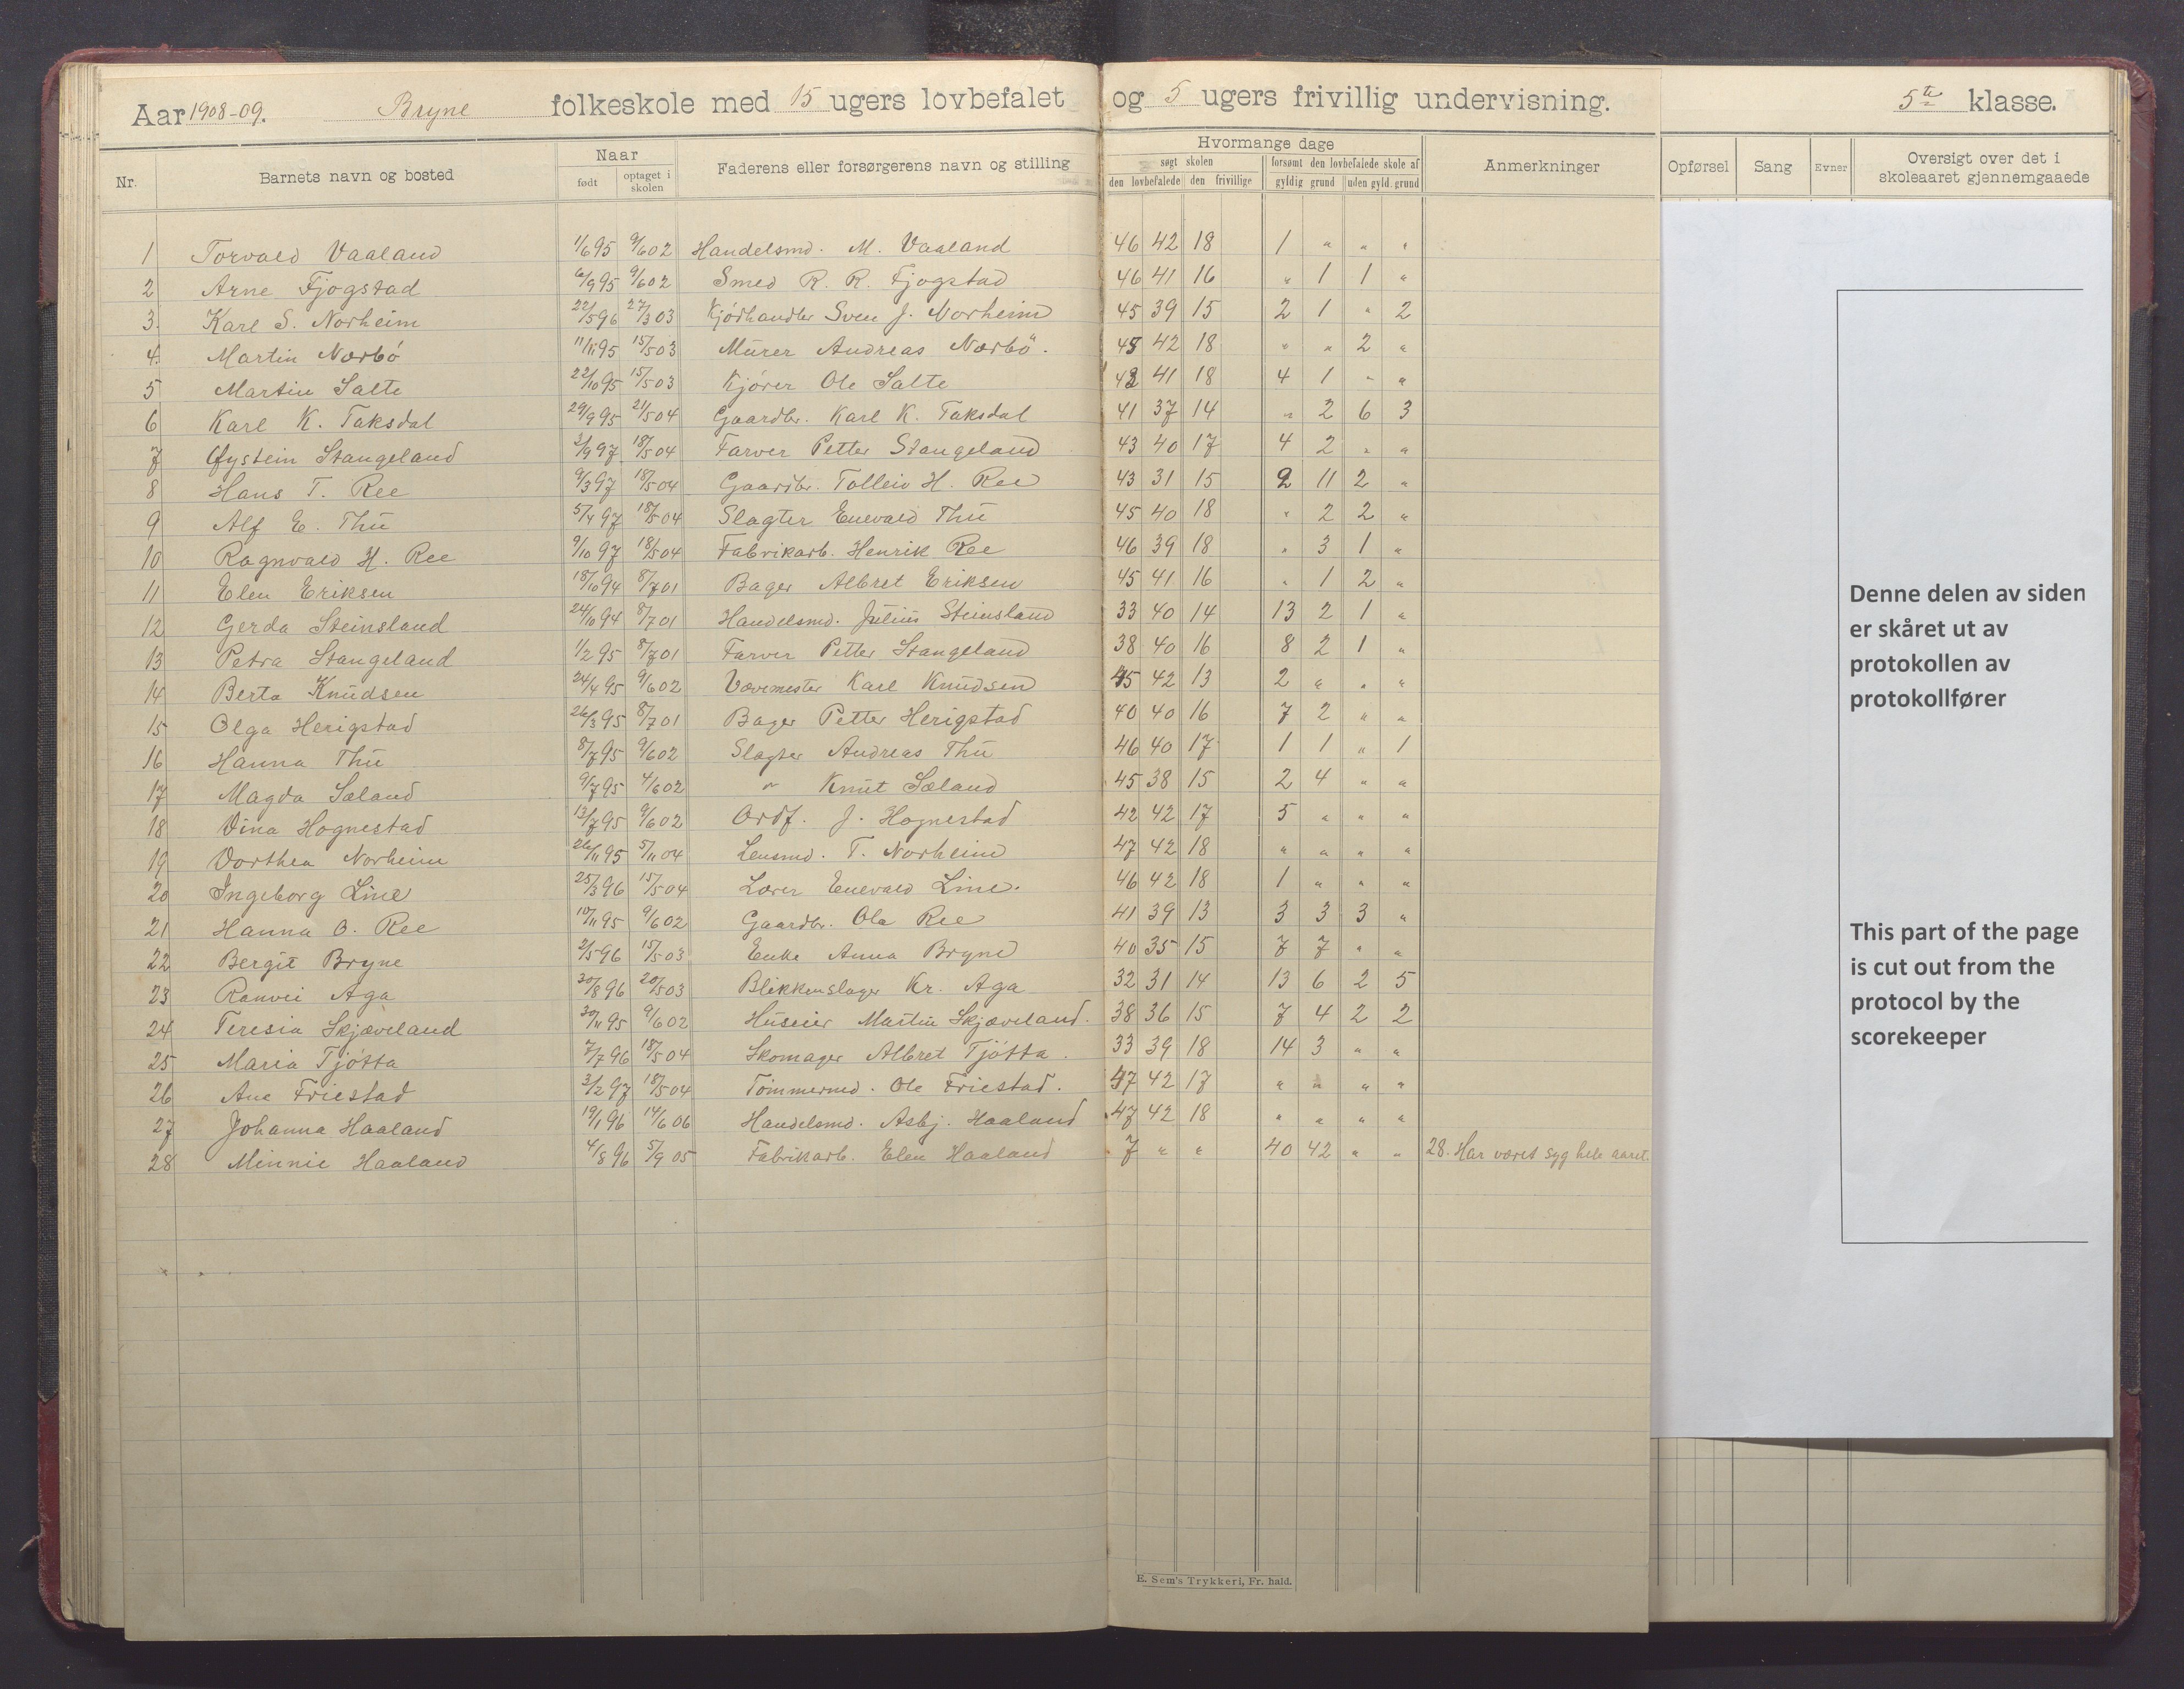 Aar 1908-09. Bryne folkeskole med 15 ugers lovbefalet og 5 ugers frivillig undervisning. 5te klasse.
Nr. Barnets navn og bosted Naar født optaget i skolen Faderens eller forsørgerens navn og stilling Hvormange dage søgt skolen den lovbefalede den frivillige forsømt den lovbefalede skole af gyldig grund uden gyld. grund Anmerkninger Opførsel Sang Evner Oversigt over det i skoleaaret gjennemgaaede
1 Torvald Vaaland 1/6 95 9/6 02 Handelsmd. M. Vaaland 46 42 18 1 " " "
2 Arne Fjogstad 6/9 95 9/6 02 Smed R. R. Fjogstad 46 41 16 " 1 1 "
3. Karl S. Norheim 22/5 96 27/3 03 Kjödhandler Sven J. Norheim 45 39 15 2 1 " 2
4. Martin Nærbö 11/11 95 15/5 03 Murer Andreas Nærbö. 45 42 18 " " 2 "
5 Martin Salte 22/10 95 15/5 03 Kjörer Ole Salte 42 41 18 4 1 " "
6 Karl K. Taksdal 29/9 95 21/5 04 Gaardbr. Karl K. Taksdal 41 37 14 " 2 6 3
7 Øystein Stangeland 3/9 97 18/5 04 Farver Petter Stangeland 43 40 17 4 2 " "
8 Hans T. Ree 9/3 97 18/5 04 Gaardbr. Tolleiv H. Ree 43 31 15 2 11 2 "
9 Alf E. Thu 5/4 97 18/5 04 Slagter Enevald Thu 45 40 18 " 2 2 "
10 Ragnvald H. Ree 9/10 97 18/5 04 Fabrikarb. Henrik Ree 46 39 18 " 3 1 "
11 Elen Eriksen 18/10 94 8/7 01 Bager Albret Eriksen 45 41 16 " 1 2 "
12 Gerda Steinsland 24/10 94 8/7 01 Handelsmd. Julius Steinsland 33 40 14 13 2 1 "
13 Petra Stangeland 1/2 95 8/7 01 Farver Petter Stangeland 38 40 16 8 2 1 "
14 Berta Knudsen 24/4 95 9/6 02 Vævemester Karl Knudsen 45 42 13 2 " " "
15 Olga Herigstad 26/3 95 8/7 01 Bager Petter Herigstad 40 40 16 7 2 " "
16 Hanna Thu 8/7 95 9/6 02 Slagter Andreas Thu 46 40 17 1 1 " 1
17 Magda Sæland 9/7 95 4/6 02 " Knut Sæland 45 38 15 2 4 " "
18 Vina Hognestad 13/7 95 9/6 02 Ordf. J. Hognestad 42 42 17 5 " " "
19 Dorthea Norheim 26/11 95 5/11 04 Lensmd. T. Norheim 47 42 18 " " " "
20 Ingeborg Line 25/3 96 15/5 04 Lærer Enevald Line. 46 42 18 1 " " "
21 Hanna O. Ree 10/11 95 9/6 02 Gaardbr. Ola Ree 41 39 13 3 3 3 "
22 Bergit Bryne 2/5 96 15/5 03 Enke Anna Bryne 40 35 15 7 7 " "
23 Ranvei Aga 30/8 96 20/5 03 Blikkenslager Kr. Aga 32 31 14 13 6 2 5
24 Teresia Skjæveland 30/11 95 9/6 02 Huseier Martin Skjæveland. 38 36 15 7 4 2 2
25 Maria Tjötta 7/7 96 18/5 04 Skomager Albret Tjötta. 33 39 18 14 3 " "
26 Ane Friestad 3/2 97 18/5 04 Tömmermd. Ole Friestad. 47 42 17 " " " "
27 Johanna Haaland 19/1 96 14/6 06 Handelsmd. Asbj. Haaland 47 42 18 " " " "
28 Minnie Haaland 4/8 96 5/9 05 Fabrikarb. Elen Haaland 7 " " 40 42 " " 28. Har været syg hele aaret.
E. Sem's Trykkeri, Fr. hald.
Denne delen av siden
er skåret ut av
protokollen av
protokollfører
This part of the page
is cut out from the
protocol by the
scorekeeper